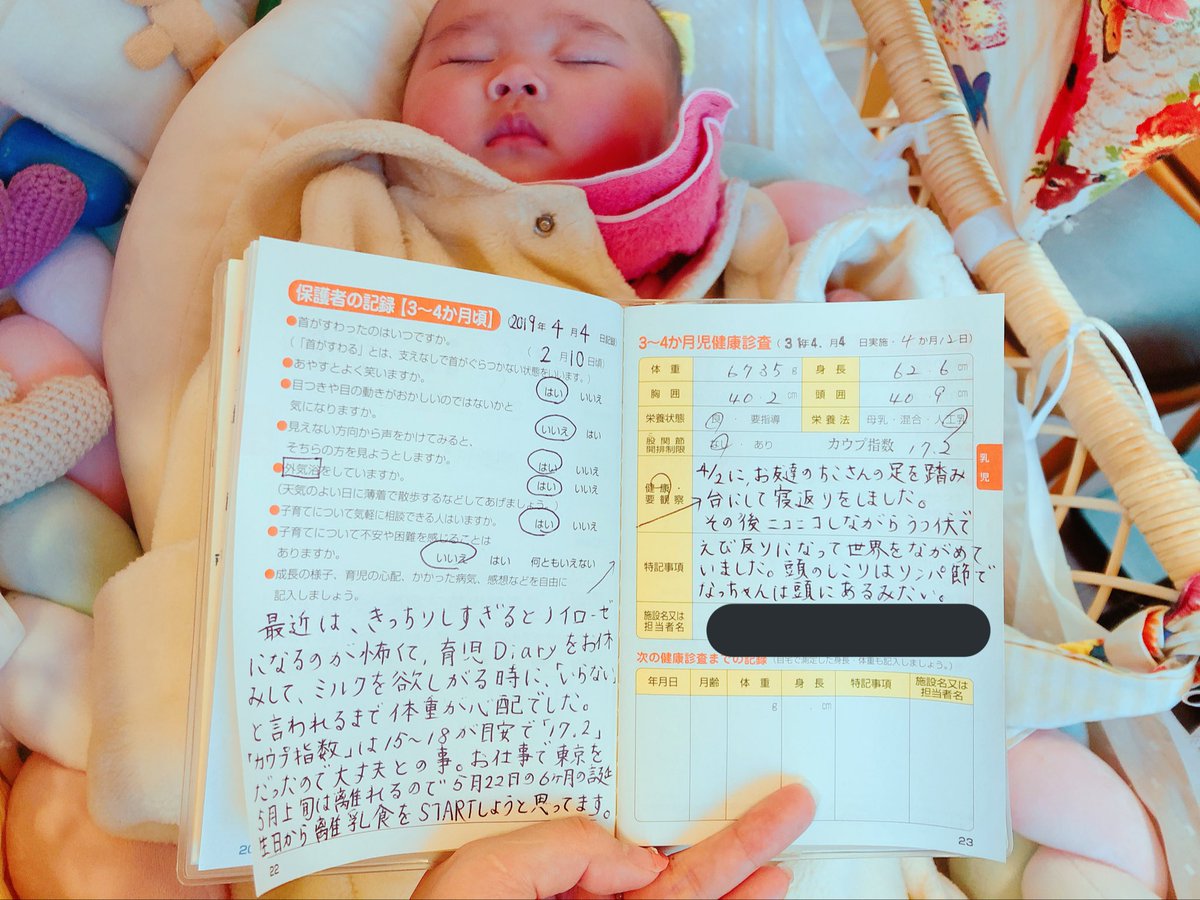 保護者の記録【3〜4か月頃】 (2019年 4月 4日記録)
●首がすわったのはいつですか。 (2月10日頃)
(「首がすわる」とは、支えなしで首がぐらつかない状態をいいます。)
●あやすとよく笑いますか。 はい いいえ
●目つきや目の動きがおかしいのではないかと
気になりますか。 いいえ はい
●見えない方向から声をかけてみると、
そちらの方を見ようとしますか。 はい いいえ
●外気浴をしていますか。 はい いいえ
(天気のよい日に薄着で散歩するなどしてあげましょう。)
●子育てについて気軽に相談できる人はいますか。 はい いいえ
●子育てについて不安や困難を感じることは
ありますか。 いいえ はい 何ともいえない
●成長の様子、育児の心配、かかった病気、感想などを自由に
記入しましょう。
最近は、きっちりしすぎるとノイローゼ
になるのが怖くて、育児Diaryをお休
みして、ミルクを欲しがる時に、「いらない」
と言われるまで体重が心配でした。
「カウプ指数」は15〜18が目安で「17.2」
だったので大丈夫との事。お仕事で東京を
5月上旬は離れるので5月22日の6ヶ月の誕
生日から離乳食をSTARTしようと思ってます。
22
3〜4か月児健康診査 (31年4.月4日実施・4か月12日)
体重 6735g 身長 62.6cm
胸囲 40.2cm 頭囲 40.9cm
栄養状態 良・要指導 栄養法 母乳・混合・人工乳
股関節開排制限 なし・あり カウプ指数 17.2
健康・要観察
4/2に、お友達のちこさんの足を踏み
台にして寝返りをしました。
その後ニコニコしながらうつ伏で
えび反りになって世界をながめて
いました。頭のしこりはリンパ節で
なっちゃんは頭にあるみたい。
特記事項
施設名又は担当者名
乳児
次の健康診査までの記録 (自宅で測定した身長・体重も記入しましょう。)
年月日 月齢 体重 身長 特記事項 施設名又は担当者名
g cm
23